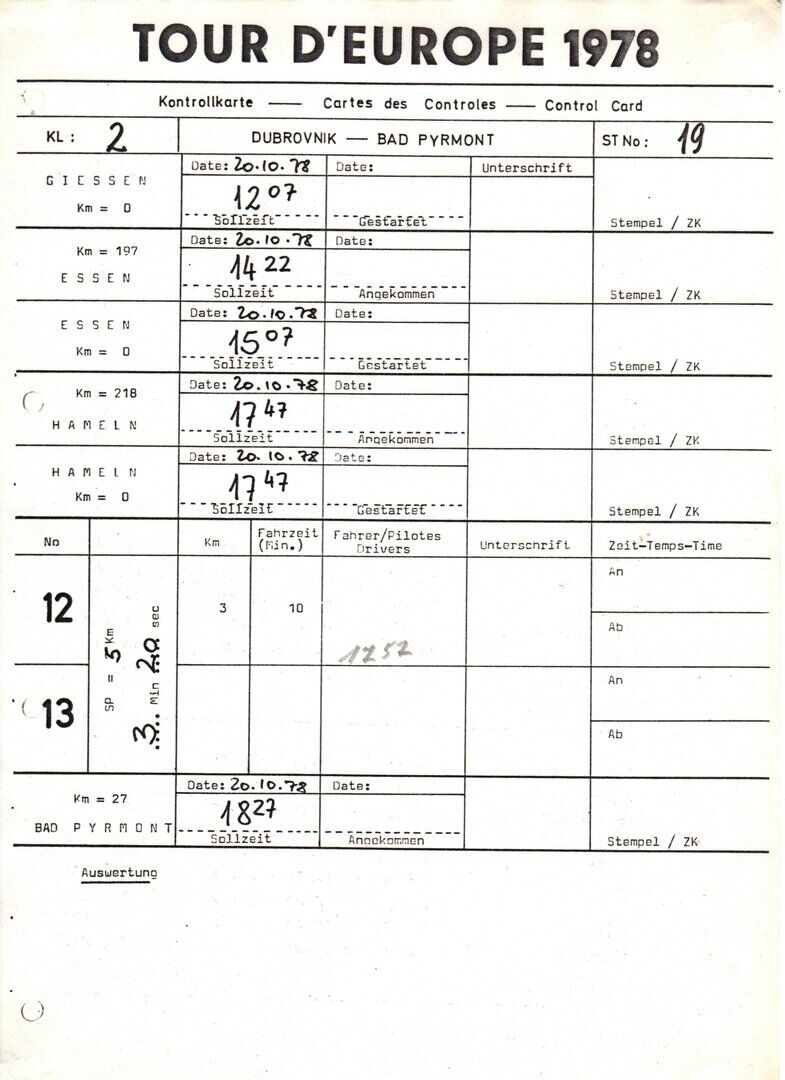 TOUR D'EUROPE 1978
Kontrollkarte — Cartes des Controles — Control Card
KL: 2 DUBROVNIK — BAD PYRMONT ST No: 19
GIESSEN
Km = 0
Date: 20.10.78 Date: Unterschrift
12 07
Sollzeit Gestartet Stempel / ZK
Km = 197
ESSEN
Date: 20.10.78 Date:
14 22
Sollzeit Angekommen Stempel / ZK
ESSEN
Km = 0
Date: 20.10.78 Date:
15 07
Sollzeit Gestartet Stempel / ZK
Km = 218
HAMELN
Date: 20.10.78 Date:
17 47
Sollzeit Angekommen Stempel / ZK
HAMELN
Km = 0
Date: 20.10.78 Date:
17 47
Sollzeit Gestartet Stempel / ZK
No Km Fahrzeit (Min.) Fahrer/Pilotes Drivers Unterschrift Zeit-Temps-Time
12 3 10 1752 An
Ab
SP = 5 Km
3 Min 20 sec
13 An
Ab
Km = 27
BAD PYRMONT
Date: 20.10.78 Date:
18 27
Sollzeit Angekommen Stempel / ZK
Auswertung